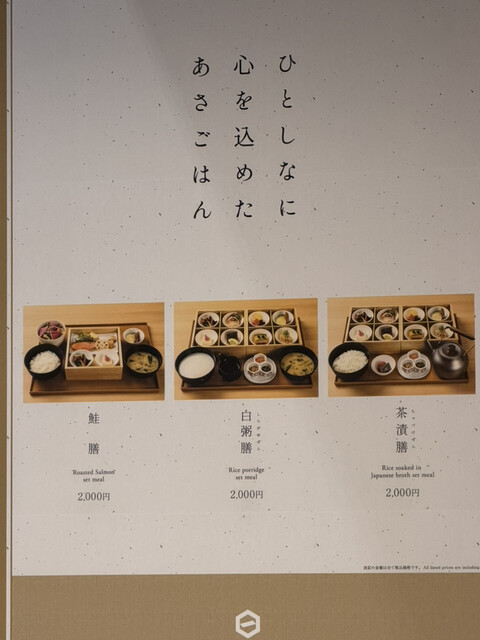 ひとしなに
心を込めた
あさごはん
鮭 膳
Roasted Salmon
set meal
2,000円
白粥膳
しらがゆぜん
Rice porridge
set meal
2,000円
茶漬膳
ちゃづけぜん
Rice soaked in
Japanese broth set meal
2,000円
All listed prices are including